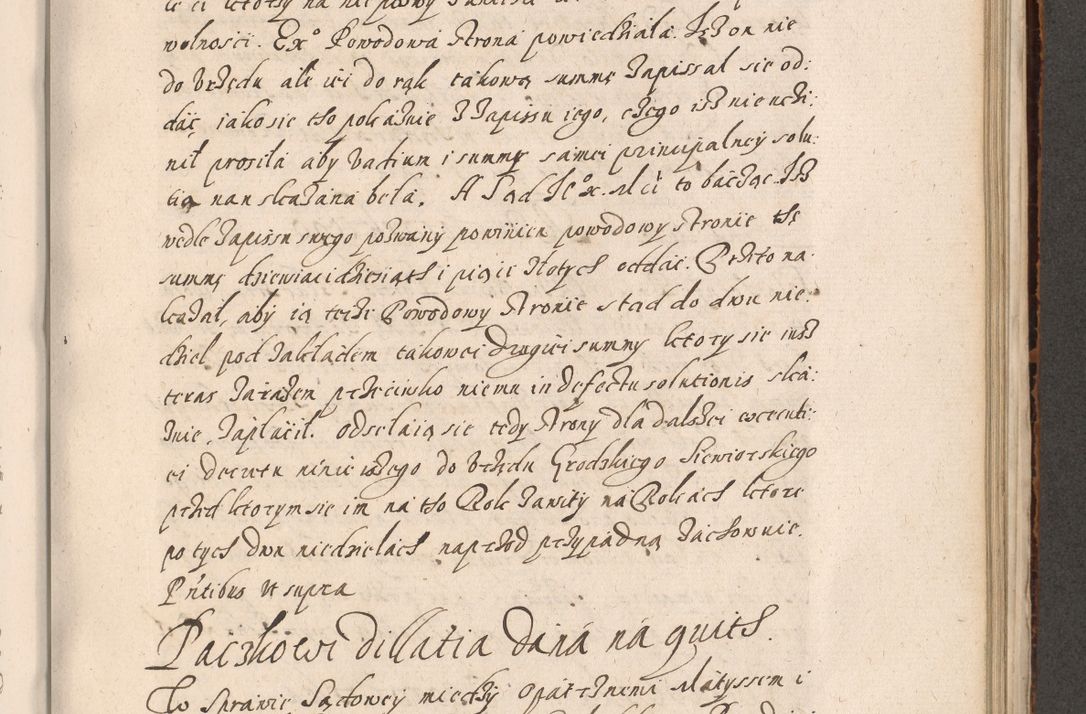 wolnosci. Exº Powodowa strona powiedziała. Isz on nie
do Urzędu ale iei do rąk takową summę zapissał sie od:
dać, iako sie tho pokaznie z zapissu iego, czego isz nie uczy:
nił prosiła aby vadium i summy samei principalney solu:
tia nan skazana beła. A Sąd Jº x. M ći to bacząc. Isz
wedle zapissu swego pozwany powinien powodowy stronie the
summę dziewiacidziesiąth i pięc złotych oddac. Przeto na:
kazał, aby ią teize Powodowy stronie stad do dwu nie:
dziel pod zakładem takowei drugiei summy ktory sie iusz
teras zarazem przeciwko niemu in defectu solutionis ska:
znie, zapłacił. Odsełaią sie tedy strony dla dalszei executi:
ei decretu ninieiszego do Urzędu Grodzkiego Siewiorskiego
przed ktorym sie im na tho Rok zawity na Rokach ktore
po tych dwu niedzielach naprzod przypadną zachownie.
Pñtibus ut supra
Paczkowi dillatia dana na quith.
W sprawie Sądowey miedzy opatrznemi Matyssem i